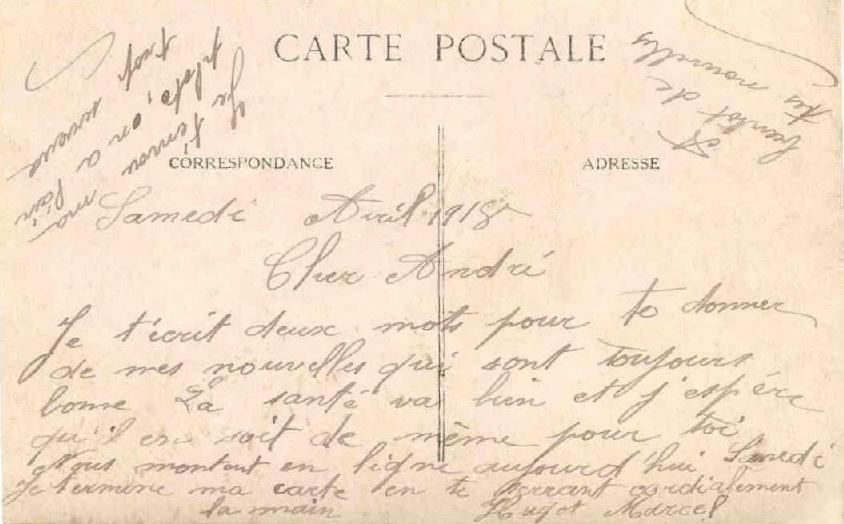 CARTE POSTALE
CORRESPONDANCE
ADRESSE
Samedi Avril 1918
Cher André
Je t'écrit deux mots pour te donner
de mes nouvelles qui sont toujours
bonne La santé va bien et j'espére
qu'il en soit de même pour toi
Nous montent en ligne aujourd'hui Samedi
Je termine ma carte en te serrant cordialement
la main Hugot Marcel
Je t'envoi ma
on a l'air
tout
A bientot de
tes nouvelles